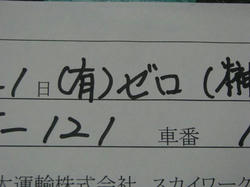 1日(有)ゼロ(榊
-121 車番
大運輸株式会社 スカイワーク